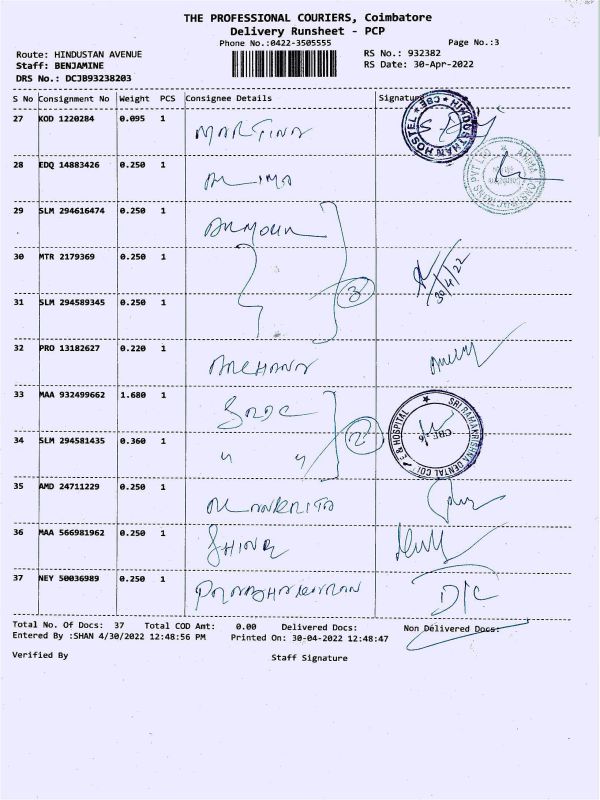 THE PROFESSIONAL COURIERS, Coimbatore
Delivery Runsheet - PCP
Phone No.:0422-3505555
Page No.:3
Route: HINDUSTAN AVENUE
RS No.: 932382
Staff: BENJAMINE
RS Date: 30-Apr-2022
DRS No.: DCJB93238203
S No Consignment No Weight PCS Consignee Details Signature
27 KOD 1220284 0.095 1 MARTINA
HINDUSTHAN HOSTEL ★ CBE ★
28 EDQ 14883426 0.250 1
29 SLM 294616474 0.250 1
30 MTR 2179369 0.250 1
3
30/4/22
31 SLM 294589345 0.250 1
32 PRO 13182627 0.220 1 ARCHANA
33 MAA 932499662 1.680 1
SRI RAMAKRISHNA DENTAL COLLEGE & HOSPITAL
34 SLM 294581435 0.360 1 " "
2
35 AMD 24711229 0.250 1
36 MAA 566981962 0.250 1
37 NEY 50036989 0.250 1
D/C
Total No. Of Docs: 37 Total COD Amt: 0.00 Delivered Docs: Non Delivered Docs:
Entered By :SHAN 4/30/2022 12:48:56 PM Printed On: 30-04-2022 12:48:47
Verified By Staff Signature